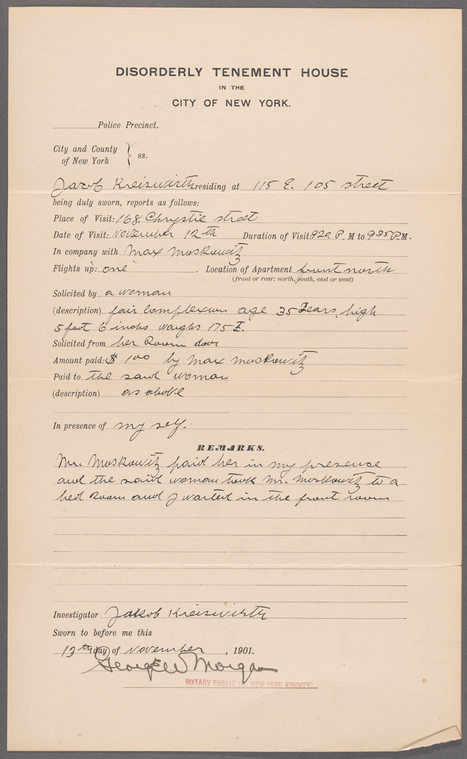 DISORDERLY TENEMENT HOUSE
IN THE
CITY OF NEW YORK.
Police Precinct.
City and County
of New York } ss.
Jacob Kreiswirth residing at 115 E. 105 street
being duly sworn, reports as follows:
Place of Visit: 168 Chrystie street
Date of Visit: November 12th Duration of Visit 920 P. M to 935 P. M.
In company with Max Moskowitz
Flights up: one . Location of Apartment front north
(front or rear: north, south, east or west)
Solicited by a woman
(description) fair complexion age 35 years, high
5 foot 6 inches waighs 175 £.
Solicited from her Room door
Amount paid: $ 1 00 by Max Moskowitz
Paid to the said woman
(description) as above
In presence of my self.
REMARKS.
Mr. Moskowitz paid her in my presence
and the said woman took Mr. Moskowitz to a
bed room and I waited in the front room
Investigator Jakob Kreiswirth
Sworn to before me this
13th day of November , 1901.
George W Morgan
NOTARY PUBLIC NEW YORK COUNTY.